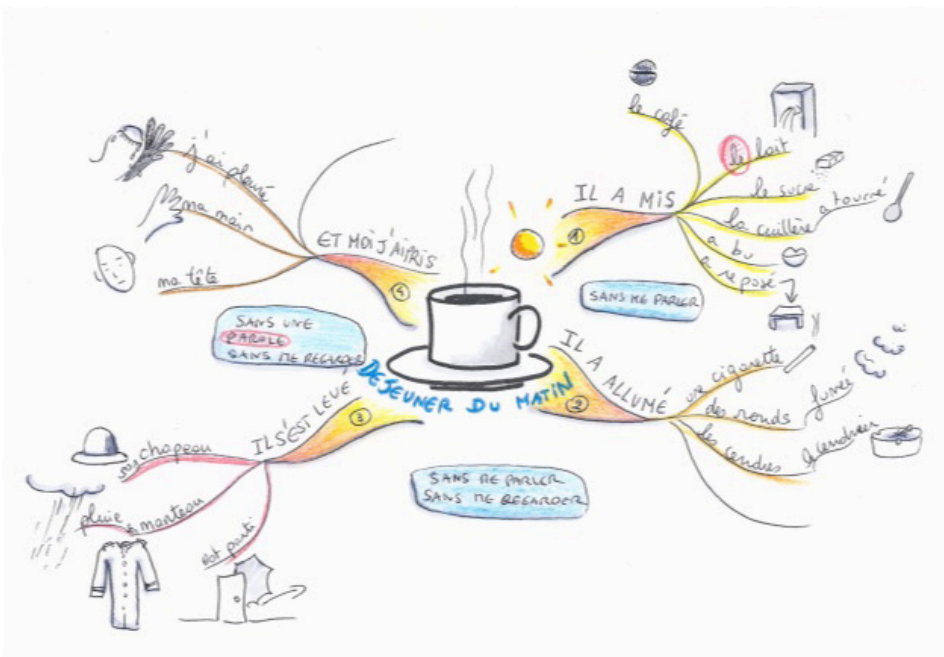 DEJEUNER DU MATIN
IL A MIS
1
le café
le lait
le sucre
la cuillère
a tourné
a bu
a reposé
SANS ME PARLER
IL A ALLUMÉ
2
une cigarette
des ronds
fumée
les cendres
le cendrier
SANS ME PARLER
SANS ME REGARDER
IL S'EST LEVÉ
3
son chapeau
manteau
pluie
est parti
SANS UNE
PAROLE
SANS ME REGARDER
ET MOI J'AI PRIS
4
ma tête
ma main
j'ai pleuré